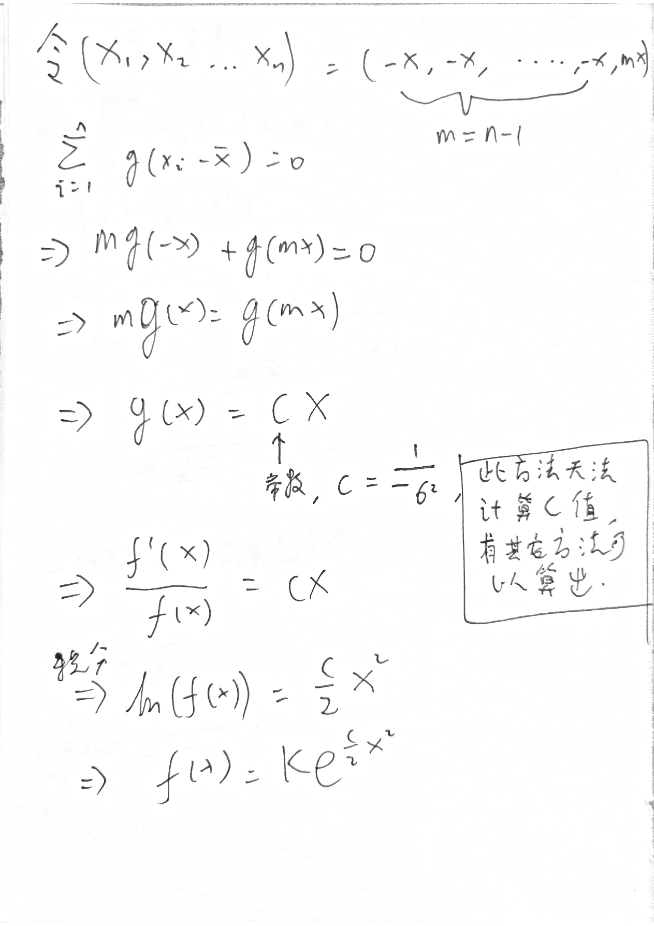 令 (x₁, x₂ ... xₙ) = (-x, -x, ....., -x, mx)
m = n-1
∑ᵢ₌₁ⁿ g(xᵢ - x̄) = 0
⇒ mg(-x) + g(mx) = 0
⇒ mg(x) = g(mx)
⇒ g(x) = CX
↑
常数, C = 1/-6²,
此方法无法
计算C值,
有其它方法可
以算出.
⇒ f'(x)/f(x) = CX
积分
⇒ ln(f(x)) = C/2 x²
⇒ f(x) = Ke^(C/2 x²)